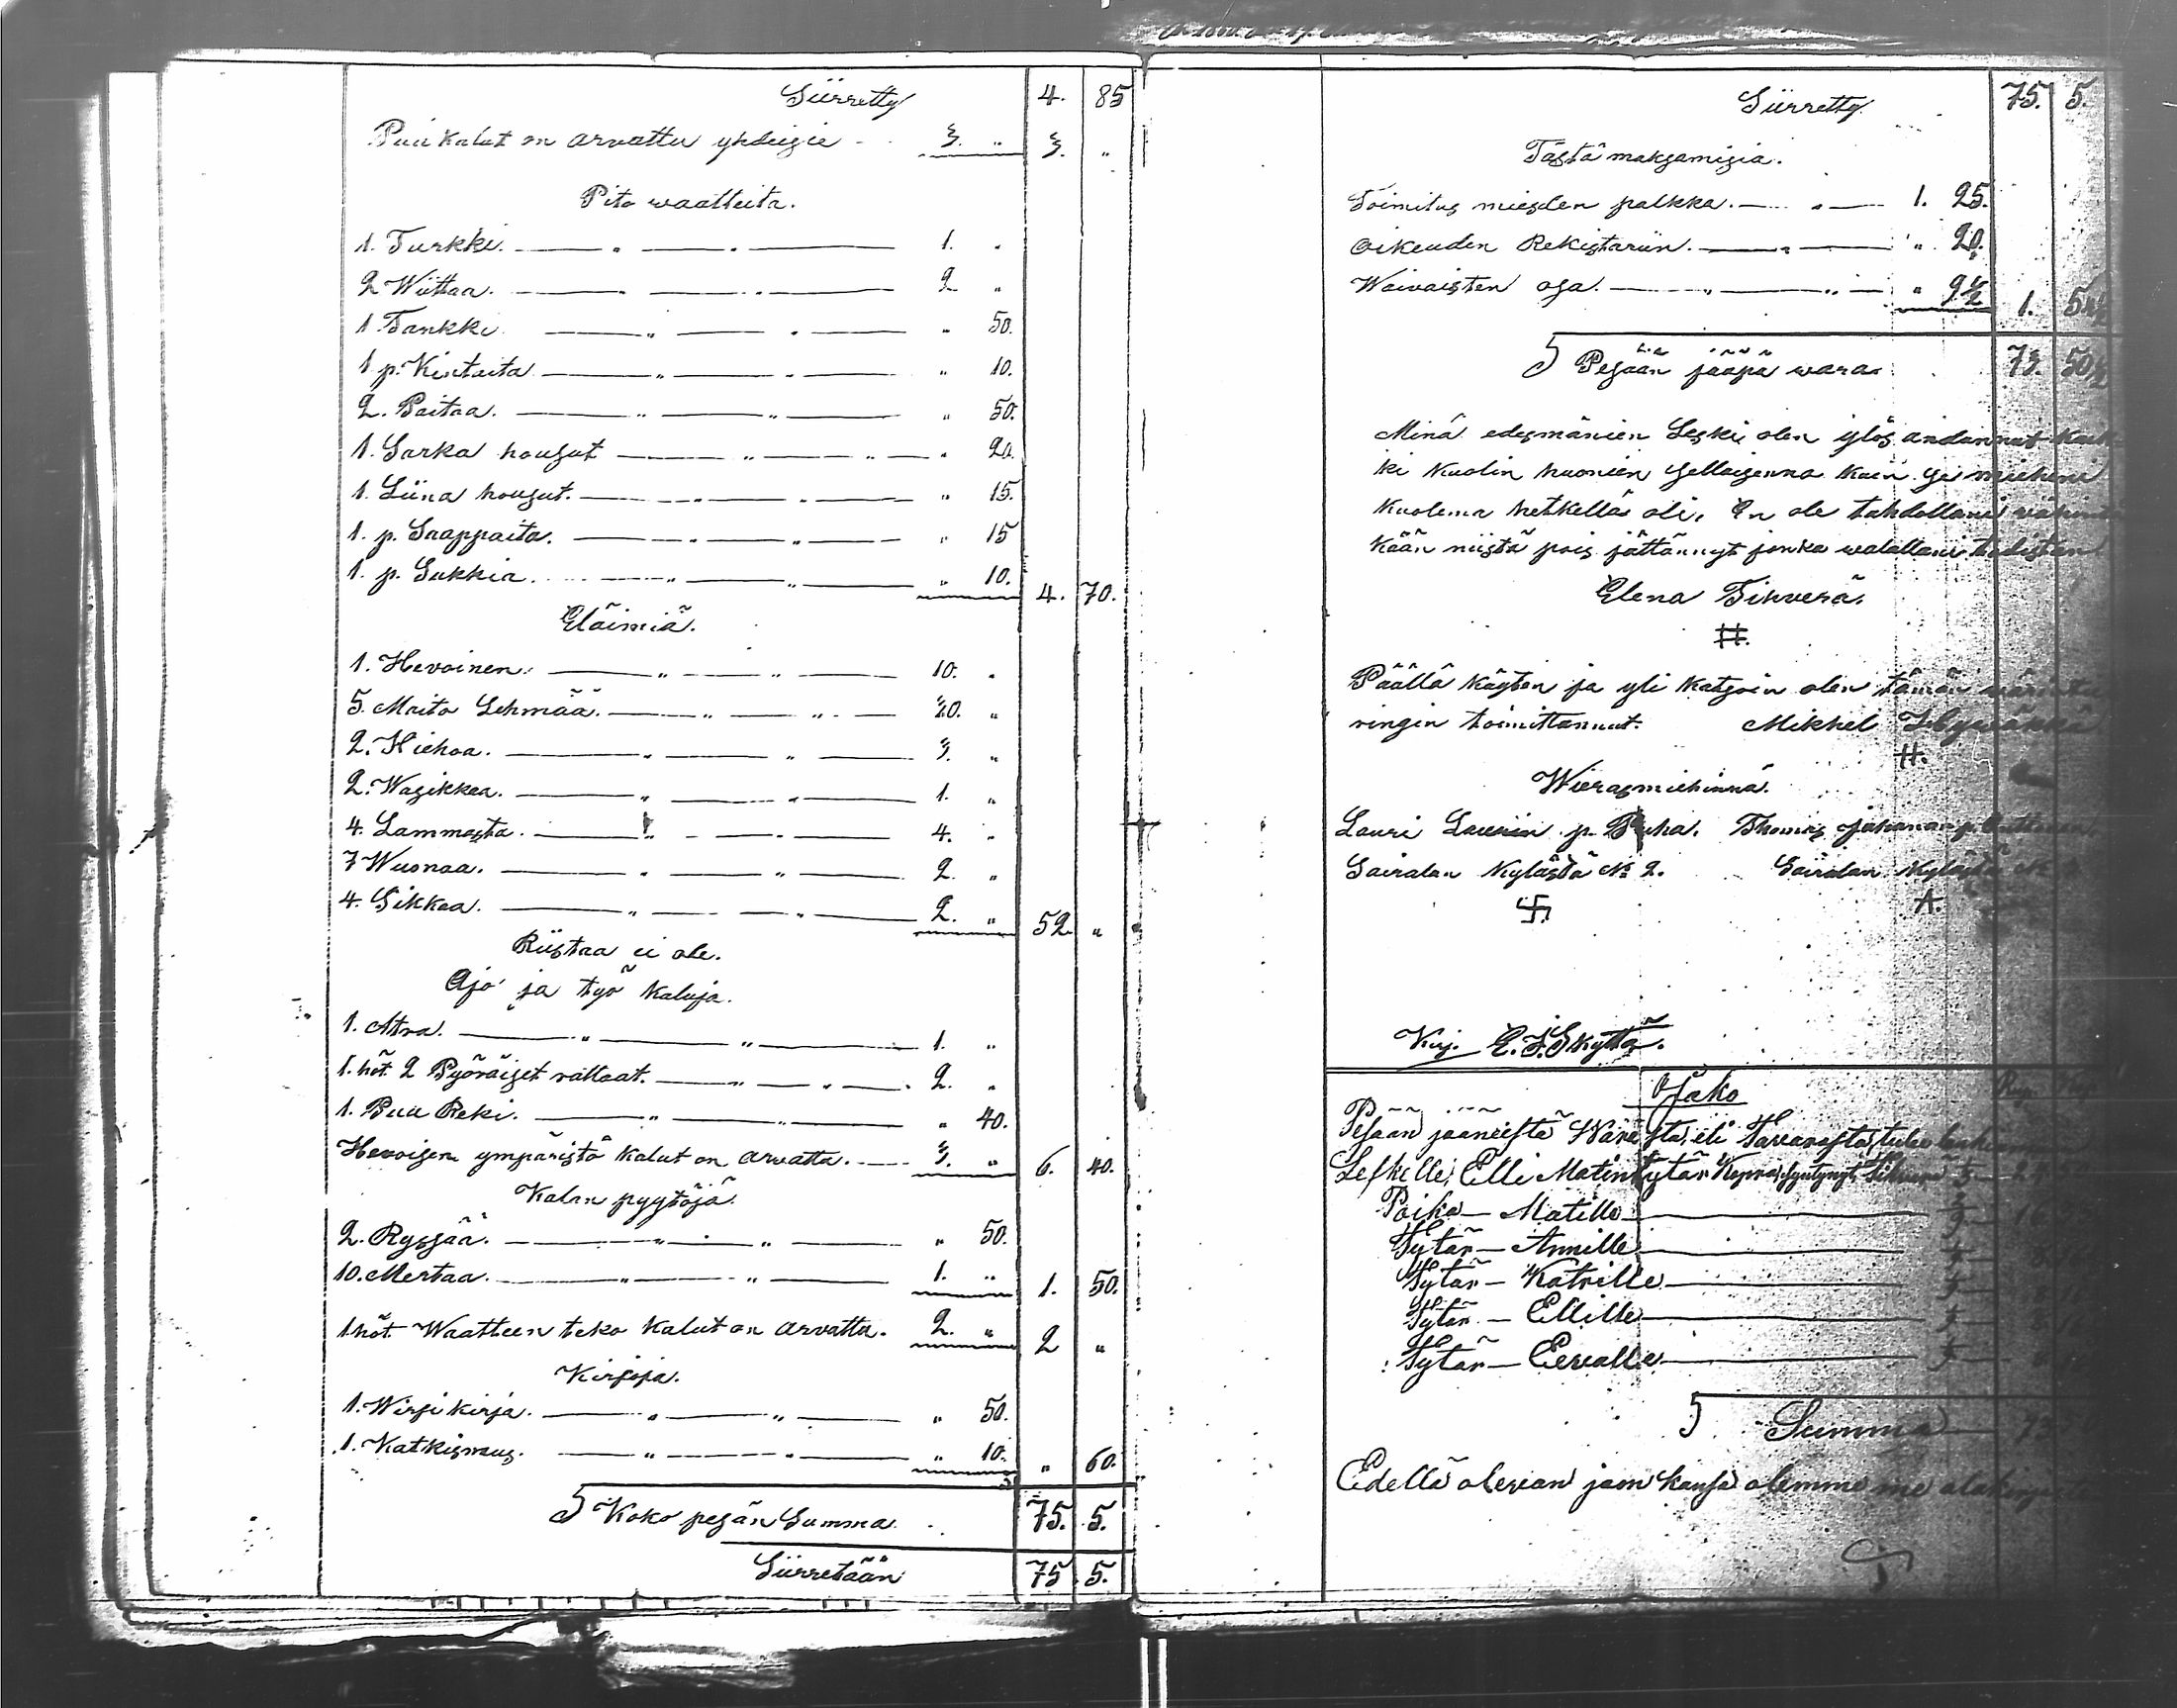 Siirretty 4. 85
Puu kalut on arvattu yhdeisie 3. " 3. "
Pito waatteita.
1. Turkki. " " 1. "
2 Wiittaa. " " 2 "
1 Takki " " " 50.
1 p. Kintaita " " " 10.
2. Paitaa. " " " 50.
1. Sarka housut " " " 20.
1. Liina housut. " " " 15.
1. p. Saappaita. " " " 15
1. p. Sukkia. " " " 10. 4. 70.
Eläimiä.
1. Hevoinen. " " 10. "
5. Maito Lehmää. " " 30. "
2. Hiehoa. " " 3. "
2. Wasikkaa. " " 1. "
4. Lammasta. " " 4. "
7 Wuonaa. " " 2. "
4. Sikkaa. " " 2. " 52 "
Riistaa ei ole.
Ajo ja työ kaluja.
1. Atra. " " 1. "
1. höt 2 Pyöräiset rattaat. " " 2. "
1. Puu Reki. " " 40.
Hevoisen ympäristö kalut on arvattu. 3. " 6. 40.
Kalan pyytöjä.
2. Ryssää. " " " 50.
10. Mertaa. " " 1. " 1. 50.
1 höt. Waatteen teko kalut on arvattu. 2. " 2 "
Kirjoja.
1. Wirsi kirja. " " " 50.
1. Katkismus. " " " 10. " 60.
S Koko pesän Summa 75. 5.
Siirretään 75 5.
Siirretty 75. 5.
Tästä maksamisia.
Toimitus miesten palkka. " 1. 25.
Oikeuden Rekistariin. " " 20.
Waivaisten osa. " " " 9½ 1. 54½
S Pesään jääpä wara 73. 50½
Minä edesmänien Leski olen ylös andannut kaik
ki kuolin huonien sellaisenna kuin se mieheni
kuolema hetkellä oli. En ole tahdollani vähintä
kään niistä pois jättännyt jonka walallani todistan
Elena Tihverä.
#.
Päällä käyten ja yli katsoin olen tämän
ringin toimittannut. Mikkel
#.
Wierasmiehinnä.
Lauri Laurin p. Puha. Thomas Juhanan p.
Sairalan kylästä No 2. Sairalan kylästä No
卐. A.
Kirj. E. J. Skyttä.
Jako Rup. Kop
Pesään jääneistä Waroista, eli Tavarasta, tulee
Leskelle, Elli Matintytär
Poika — Matille
Tytär — Annille
Tytär — Katrille
Tytär — Ellille
Tytär — Eevalle
S Summa 73
Edellä olevan jaon kansa olemme me